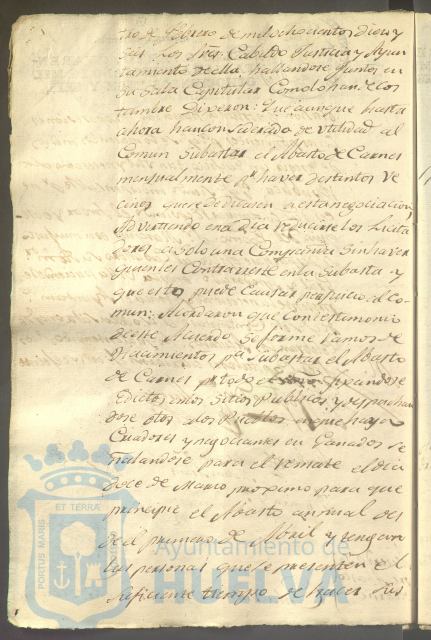 tro de Febrero de mil ochocientos Diez y
Seis Los Sres. Cabildo Justicia y Ayun
tamiento de ella hallandose juntos en
su Sala Capitular Como lo han de cos
tumbre Dixeron: Que aunque hasta
ahora han considerado de utilidad al
Comun Subastar el Abasto de Carnes
mensualmente pr. haver distintos ve
cinos que se dedicasen a esta negociacion
Advirtiendo en el dia reducirse los Licita
dores a solo una Compañia sin haver
quien les Contrarreste en la Subasta y
que esto puede Causar perjuicio al Co
mun: Acordaron que Con testimonio
de este Acuerdo Se forme ramo de
para Subastar el Abasto
de Carnes pr. todo el año, fixandose
Edictos en los Sitios Publicos y despachan
dose otros a los Pueblos en que haya
Criadores y negociantes en Ganados se
ñalandose para el remate el dia
doce de Marzo proximo para que
principie el Abasto annual des
de el primero de Abril y tengan
las personas que se presenten el
suficiente tiempo de hacer sus
PORTUS MARIS ET TERRÆ CUSTODIA
Ayuntamiento de
HUELVA